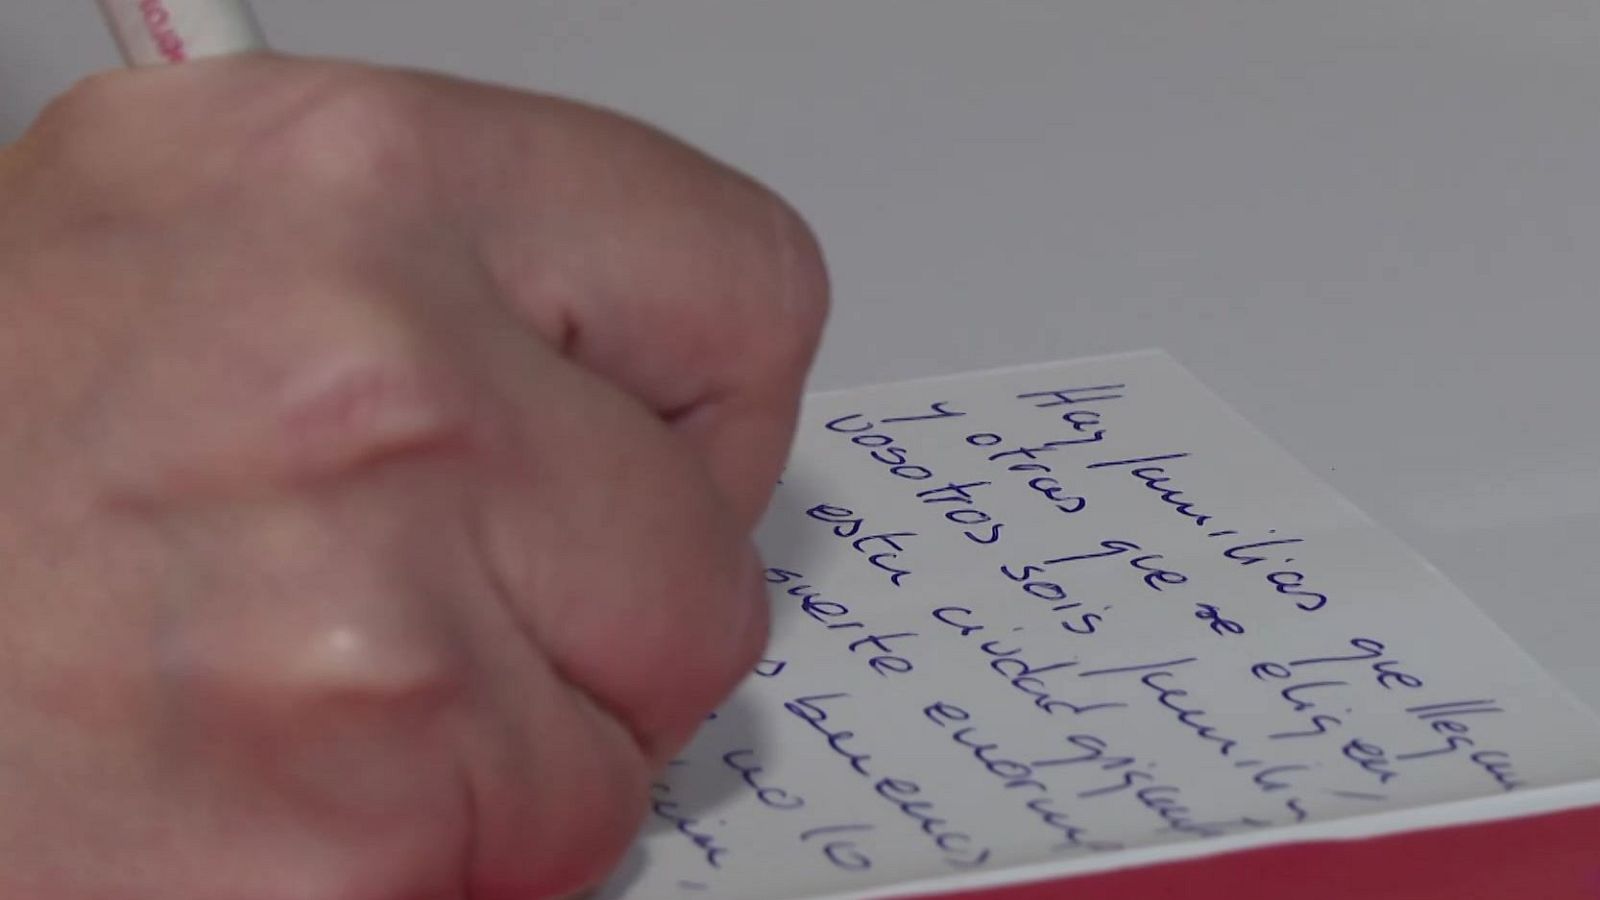 Hay familias que llegan
y otras que se eligen,
vosotros sois familia
esta ciudad gigante
suerte enorme
buenos
no lo